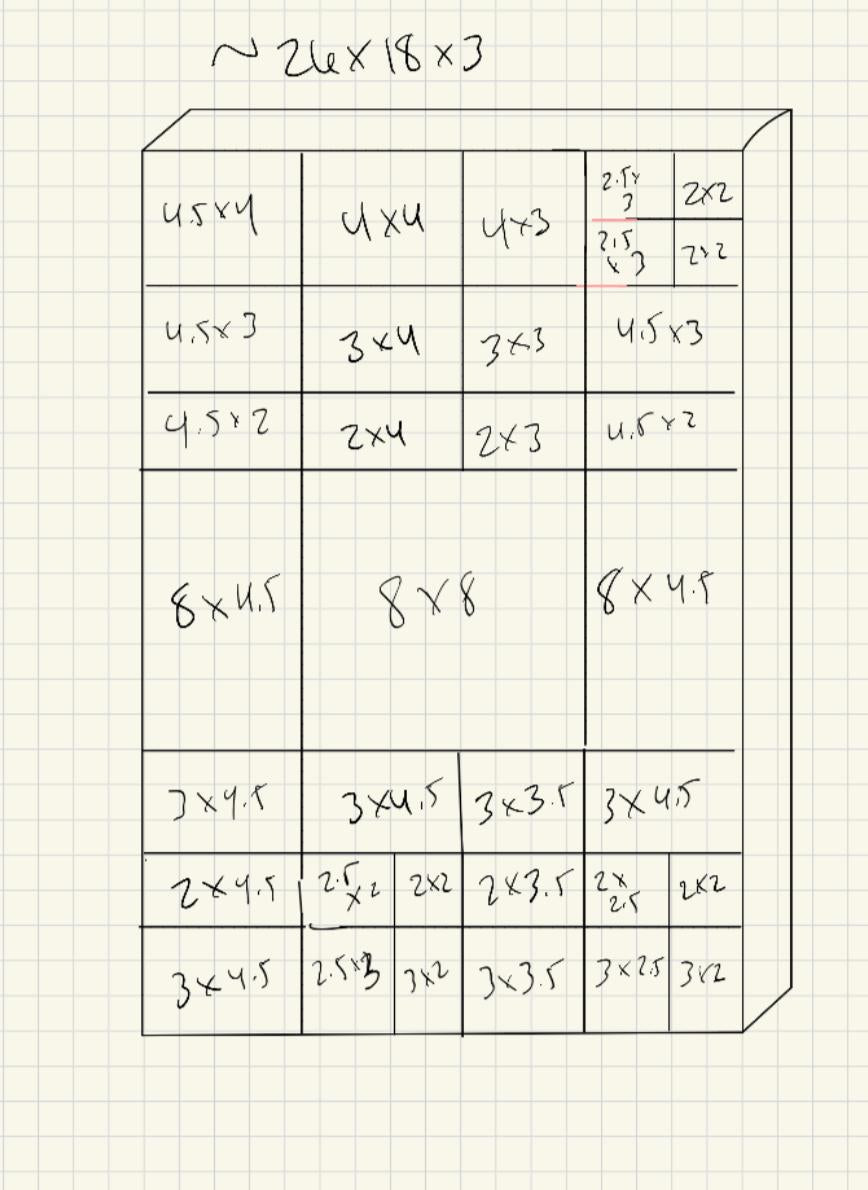 ~ 26 x 18 x 3
4.5 x 4 4 x 4 4 x 3 2.5 x 3 2 x 2
2.5 x 3 2 x 2
4.5 x 3 3 x 4 3 x 3 4.5 x 3
4.5 x 2 2 x 4 2 x 3 4.5 x 2
8 x 4.5 8 x 8 8 x 4.5
3 x 4.5 3 x 4.5 3 x 3.5 3 x 4.5
2 x 4.5 2.5 x 2 2 x 2 2 x 3.5 2 x 2.5 2 x 2
3 x 4.5 2.5 x 3 3 x 2 3 x 3.5 3 x 2.5 3 x 2